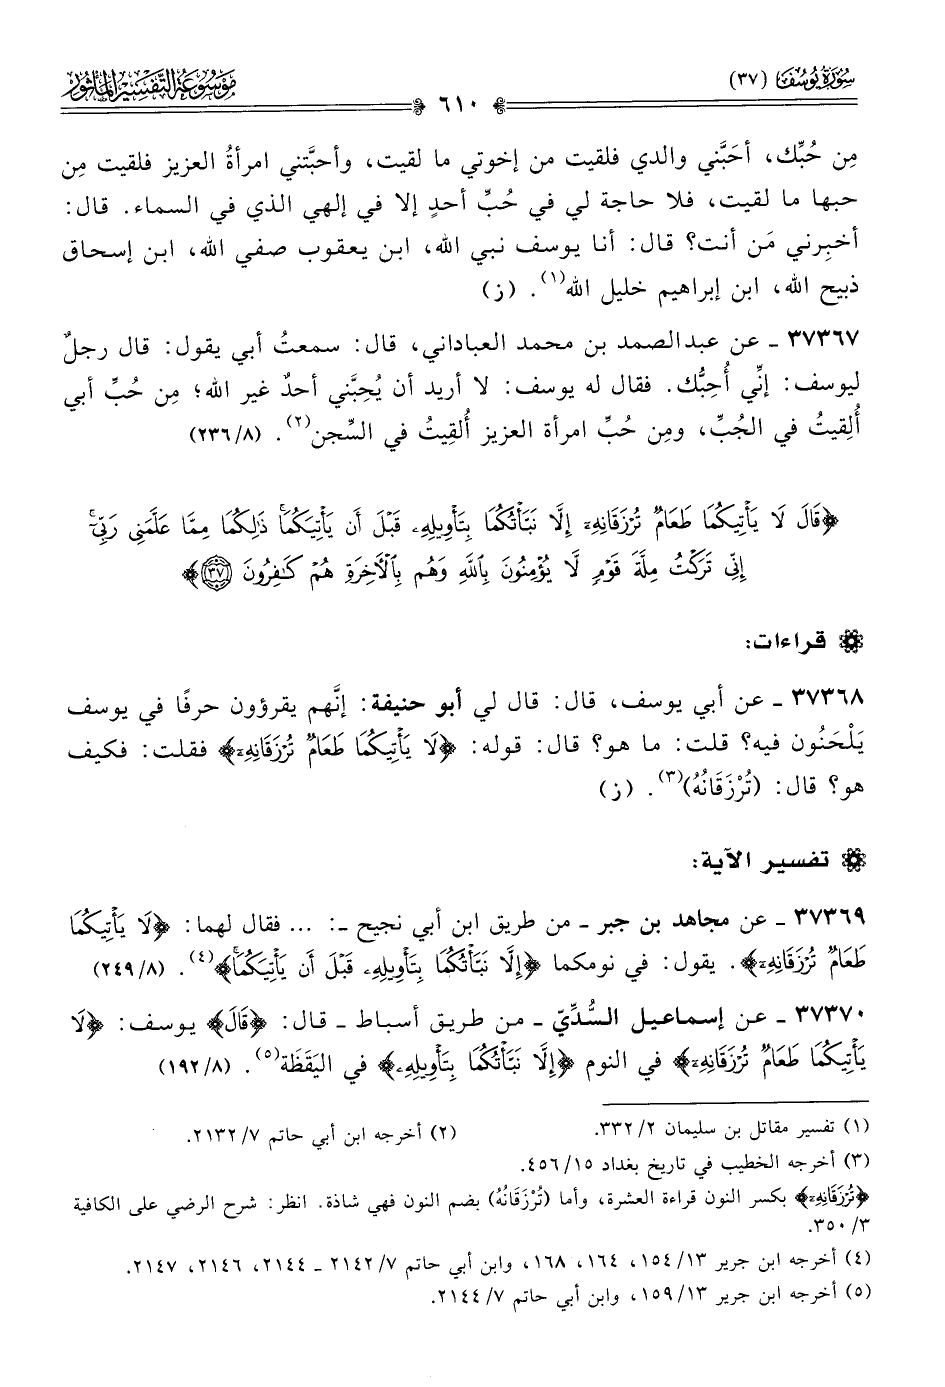 سُورَةُ يُوسُفَ (٣٧)
٦١٠
مَوْسُوعَة التَّفْسِيرِ المَأْثُور
مِن حُبِّك، أحَبَّني والدي فلقيت من إخوتي ما لقيت، وأحبَّتني امرأةُ العزيز فلقيت مِن
حبها ما لقيت، فلا حاجة لي في حُبِّ أحدٍ إلا في إلهي الذي في السماء. قال:
أخبِرني مَن أنت؟ قال: أنا يوسف نبي الله، ابن يعقوب صفي الله، ابن إسحاق
ذبيح الله، ابن إبراهيم خليل الله(١). (ز)
٣٧٣٦٧ ـ عن عبدالصمد بن محمد العباداني، قال: سمعتُ أبي يقول: قال رجلٌ
ليوسف: إنِّي أُحِبُّك. فقال له يوسف: لا أريد أن يُحِبَّني أحدٌ غير الله؛ مِن حُبِّ أبي
أُلقِيتُ في الجُبِّ، ومِن حُبِّ امرأة العزيز أُلقِيتُ في السِّجن(٢). (٢٣٦/٨)
﴿قَالَ لَا يَأْتِيكُمَا طَعَامٌ تُرْزَقَانِهِۦٓ إِلَّا نَبَّأْتُكُمَا بِتَأْوِيلِهِۦ قَبْلَ أَن يَأْتِيَكُمَاۚ ذَٰلِكُمَا مِمَّا عَلَّمَنِى رَبِّىٓۚ
إِنِّى تَرَكْتُ مِلَّةَ قَوْمٍ لَّا يُؤْمِنُونَ بِٱللَّهِ وَهُم بِٱلْأَخِرَةِ هُمْ كَٰفِرُونَ ٣٧﴾
قراءات:
٣٧٣٦٨ ـ عن أبي يوسف، قال: قال لي أبو حنيفة: إنَّهم يقرؤون حرفًا في يوسف
يَلْحَنُون فيه؟ قلت: ما هو؟ قال: قوله: ﴿لَا يَأْتِيكُمَا طَعَامٌ تُرْزَقَانِهِۦٓ﴾ فقلت: فكيف
هو؟ قال: (تُرْزَقَانُهُ)(٣). (ز)
تفسير الآية:
٣٧٣٦٩ ـ عن مجاهد بن جبر ـ من طريق ابن أبي نجيح ـ: ... فقال لهما: ﴿لَا يَأْتِيكُمَا
طَعَامٌ تُرْزَقَانِهِۦٓ﴾. يقول: في نومكما ﴿إِلَّا نَبَّأْتُكُمَا بِتَأْوِيلِهِۦ قَبْلَ أَن يَأْتِيَكُمَاۚ﴾(٤). (٢٤٩/٨)
٣٧٣٧٠ ـ عن إسماعيل السُّدِّيّ ـ من طريق أسباط ـ قال: ﴿قَالَ﴾ يوسف: ﴿لَا
يَأْتِيكُمَا طَعَامٌ تُرْزَقَانِهِۦٓ﴾ في النوم ﴿إِلَّا نَبَّأْتُكُمَا بِتَأْوِيلِهِۦ﴾ في اليَقَظَة(٥). (١٩٢/٨)
(١) تفسير مقاتل بن سليمان ٣٣٢/٢. (٢) أخرجه ابن أبي حاتم ٢١٣٢/٧.
(٣) أخرجه الخطيب في تاريخ بغداد ٤٥٦/١٥.
﴿تُرْزَقَانِهِۦٓ﴾ بكسر النون قراءة العشرة، وأما (تُرْزَقَانُهُ) بضم النون فهي شاذة. انظر: شرح الرضي على الكافية
٣٥٠/٣.
(٤) أخرجه ابن جرير ١٥٤/١٣، ١٦٤، ١٦٨، وابن أبي حاتم ٢١٤٢/٧ ـ ٢١٤٤، ٢١٤٦، ٢١٤٧.
(٥) أخرجه ابن جرير ١٥٩/١٣، وابن أبي حاتم ٢١٤٤/٧.